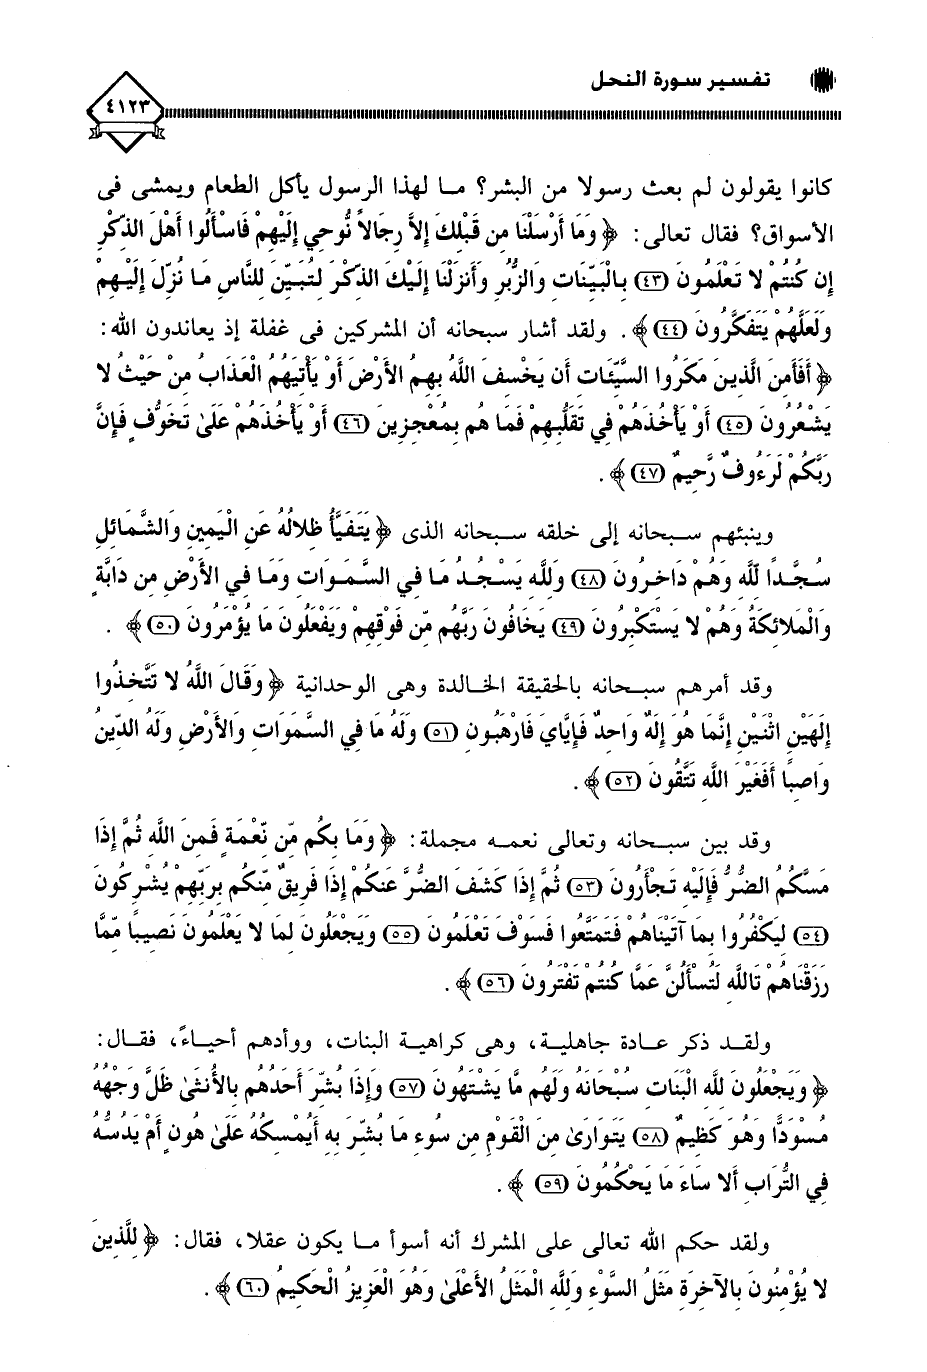 تفسير سورة النحل
٤١٢٣
كانوا يقولون لم بعث رسولا من البشر؟ مـا لهذا الرسول يأكل الطعام ويمشى فى
الأسواق؟ فقال تعالى: ﴿ وَمَا أَرْسَلْنَا مِن قَبْلِكَ إِلاَّ رِجَالاً نُّوحِي إِلَيْهِمْ فَاسْأَلُوا أَهْلَ الذِّكْرِ
إِن كُنتُمْ لا تَعْلَمُونَ (٤٣) بِالْبَيِّنَاتِ وَالزُّبُرِ وَأَنزَلْنَا إِلَيْكَ الذِّكْرَ لِتُبَيِّنَ لِلنَّاسِ مَا نُزِّلَ إِلَيْهِمْ
وَلَعَلَّهُمْ يَتَفَكَّرُونَ (٤٤) ﴾ . ولقد أشار سبحانه أن المشركين فى غفلة إذ يعاندون الله:
﴿ أَفَأَمِنَ الَّذِينَ مَكَرُوا السَّيِّئَاتِ أَن يَخْسِفَ اللَّهُ بِهِمُ الأَرْضَ أَوْ يَأْتِيَهُمُ الْعَذَابُ مِنْ حَيْثُ لا
يَشْعُرُونَ (٤٥) أَوْ يَأْخُذَهُمْ فِي تَقَلُّبِهِمْ فَمَا هُم بِمُعْجِزِينَ (٤٦) أَوْ يَأْخُذَهُمْ عَلَىٰ تَخَوُّفٍ فَإِنَّ
رَبَّكُمْ لَرَءُوفٌ رَّحِيمٌ (٤٧) ﴾ .
وينبئهم سبحانه إلى خلقه سبحانه الذى ﴿ يَتَفَيَّأُ ظِلالُهُ عَنِ الْيَمِينِ وَالشَّمَائِلِ
سُجَّدًا لِّلَّهِ وَهُمْ دَاخِرُونَ (٤٨) وَلِلَّهِ يَسْجُدُ مَا فِي السَّمَوَاتِ وَمَا فِي الأَرْضِ مِن دَابَّةٍ
وَالْمَلائِكَةُ وَهُمْ لا يَسْتَكْبِرُونَ (٤٩) يَخَافُونَ رَبَّهُم مِّن فَوْقِهِمْ وَيَفْعَلُونَ مَا يُؤْمَرُونَ (٥٠) ﴾ .
وقد أمرهم سبحانه بالحقيقة الخالدة وهى الوحدانية ﴿ وَقَالَ اللَّهُ لا تَتَّخِذُوا
إِلَهَيْنِ اثْنَيْنِ إِنَّمَا هُوَ إِلَهٌ وَاحِدٌ فَإِيَّايَ فَارْهَبُونِ (٥١) وَلَهُ مَا فِي السَّمَوَاتِ وَالأَرْضِ وَلَهُ الدِّينُ
وَاصِبًا أَفَغَيْرَ اللَّهِ تَتَّقُونَ (٥٢) ﴾ .
وقد بين سبحانه وتعالى نعمه مجملة: ﴿ وَمَا بِكُم مِّن نِّعْمَةٍ فَمِنَ اللَّهِ ثُمَّ إِذَا
مَسَّكُمُ الضُّرُّ فَإِلَيْهِ تَجْأَرُونَ (٥٣) ثُمَّ إِذَا كَشَفَ الضُّرَّ عَنكُمْ إِذَا فَرِيقٌ مِّنكُم بِرَبِّهِمْ يُشْرِكُونَ
(٥٤) لِيَكْفُرُوا بِمَا آتَيْنَاهُمْ فَتَمَتَّعُوا فَسَوْفَ تَعْلَمُونَ (٥٥) وَيَجْعَلُونَ لِمَا لا يَعْلَمُونَ نَصِيبًا مِّمَّا
رَزَقْنَاهُمْ تَاللَّهِ لَتُسْأَلُنَّ عَمَّا كُنتُمْ تَفْتَرُونَ (٥٦) ﴾ .
ولقـد ذكر عـادة جاهلـية، وهى كراهية البنات، ووأدهم أحياءً، فقـال:
﴿ وَيَجْعَلُونَ لِلَّهِ الْبَنَاتِ سُبْحَانَهُ وَلَهُم مَّا يَشْتَهُونَ (٥٧) وَإِذَا بُشِّرَ أَحَدُهُم بِالأُنثَىٰ ظَلَّ وَجْهُهُ
مُسْوَدًّا وَهُوَ كَظِيمٌ (٥٨) يَتَوَارَىٰ مِنَ الْقَوْمِ مِن سُوءِ مَا بُشِّرَ بِهِ أَيُمْسِكُهُ عَلَىٰ هُونٍ أَمْ يَدُسُّهُ
فِي التُّرَابِ أَلا سَاءَ مَا يَحْكُمُونَ (٥٩) ﴾ .
ولقد حكم الله تعالى على المشرك أنه أسوأ مـا يكون عقلا، فقال: ﴿ لِلَّذِينَ
لا يُؤْمِنُونَ بِالآخِرَةِ مَثَلُ السَّوْءِ وَلِلَّهِ الْمَثَلُ الأَعْلَىٰ وَهُوَ الْعَزِيزُ الْحَكِيمُ (٦٠) ﴾ .